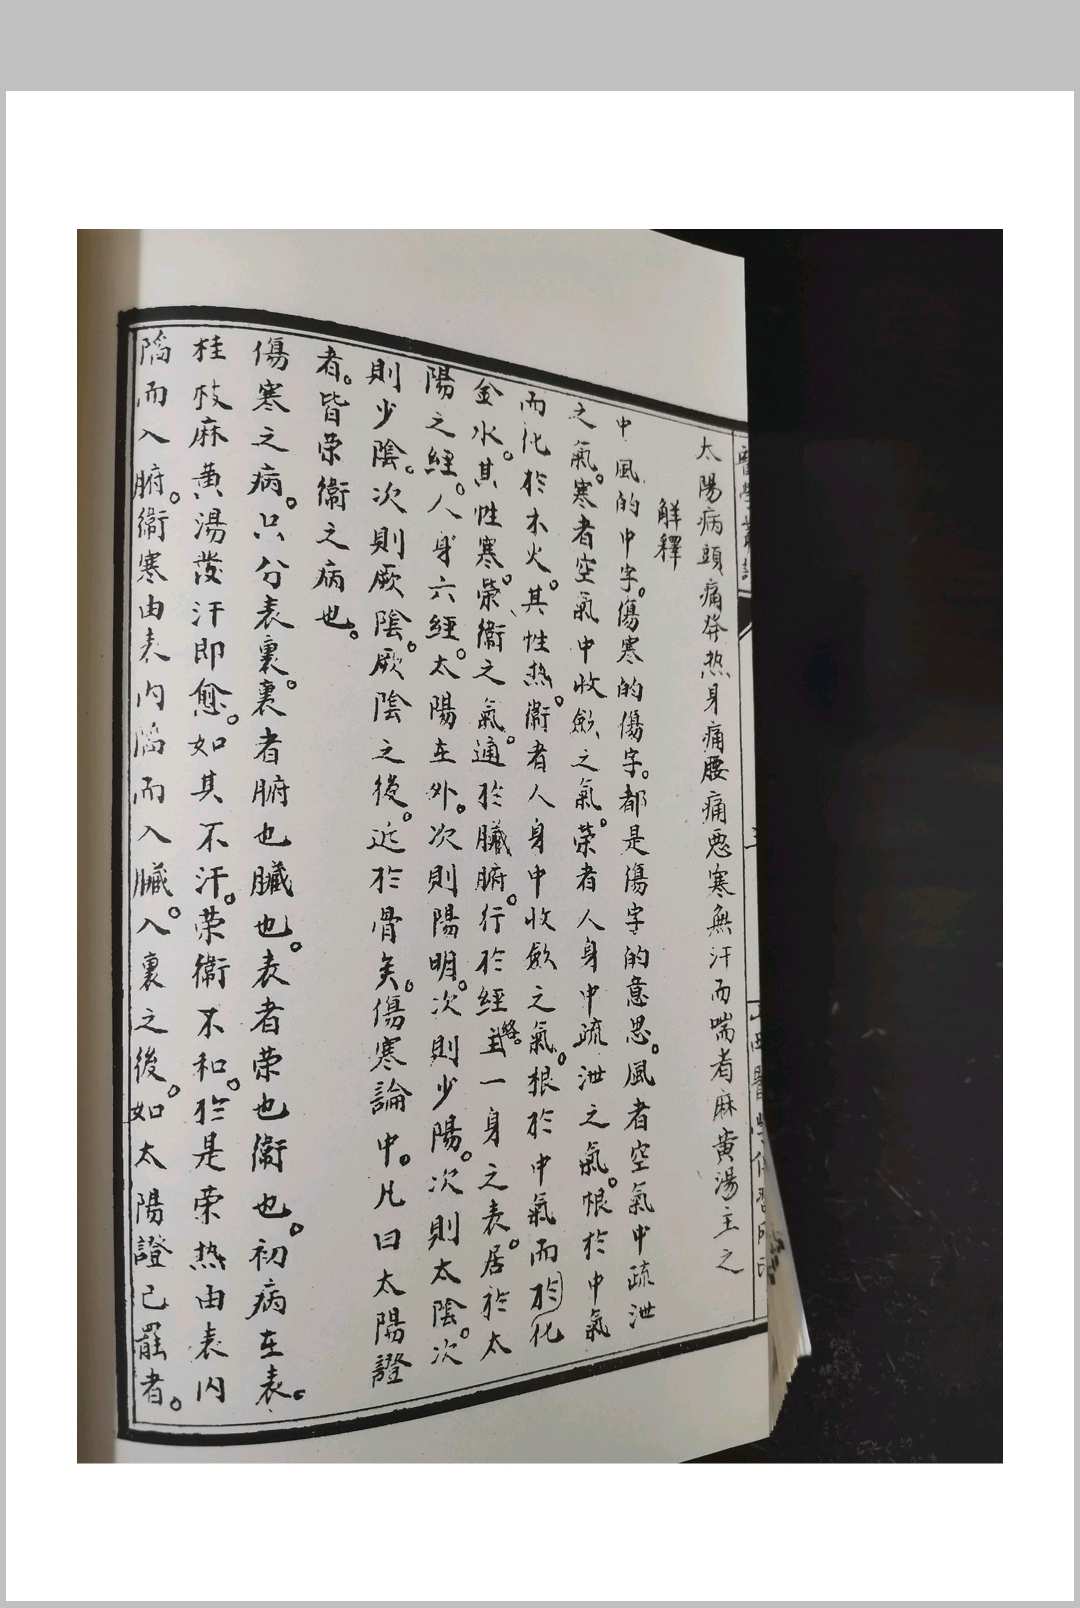 太陽病頭痛發热身痛腰痛惡寒無汗而喘者麻黄湯主之
解釋
中風的中字。傷寒的傷字。都是傷字的意思。風者空氣中疏泄
之氣。寒者空氣中收歛之氣。荣者人身中疏泄之氣。根於中氣
而化於木火。其性热。衞者人身中收歛之氣。根於中氣而於化
金水。其性寒。荣、衞之氣。通於臟腑。行於經絡。主一身之表。居於太
陽之經。人身六經。太陽在外。次則陽明。次則少陽。次則太陰。次
則少陰。次則厥陰。厥陰之後。近於骨矣。傷寒論中。凡曰太陽證
者。皆荣衞之病也。
傷寒之病。只分表裏。裏者腑也臟也。表者荣也衞也。初病在表。
桂枝麻黄湯發汗即愈。如其不汗。荣衞不和。於是荣热由表内
陷而入腑。衞寒由表内陷而入臟。入裏之後。如太陽證已罷者。